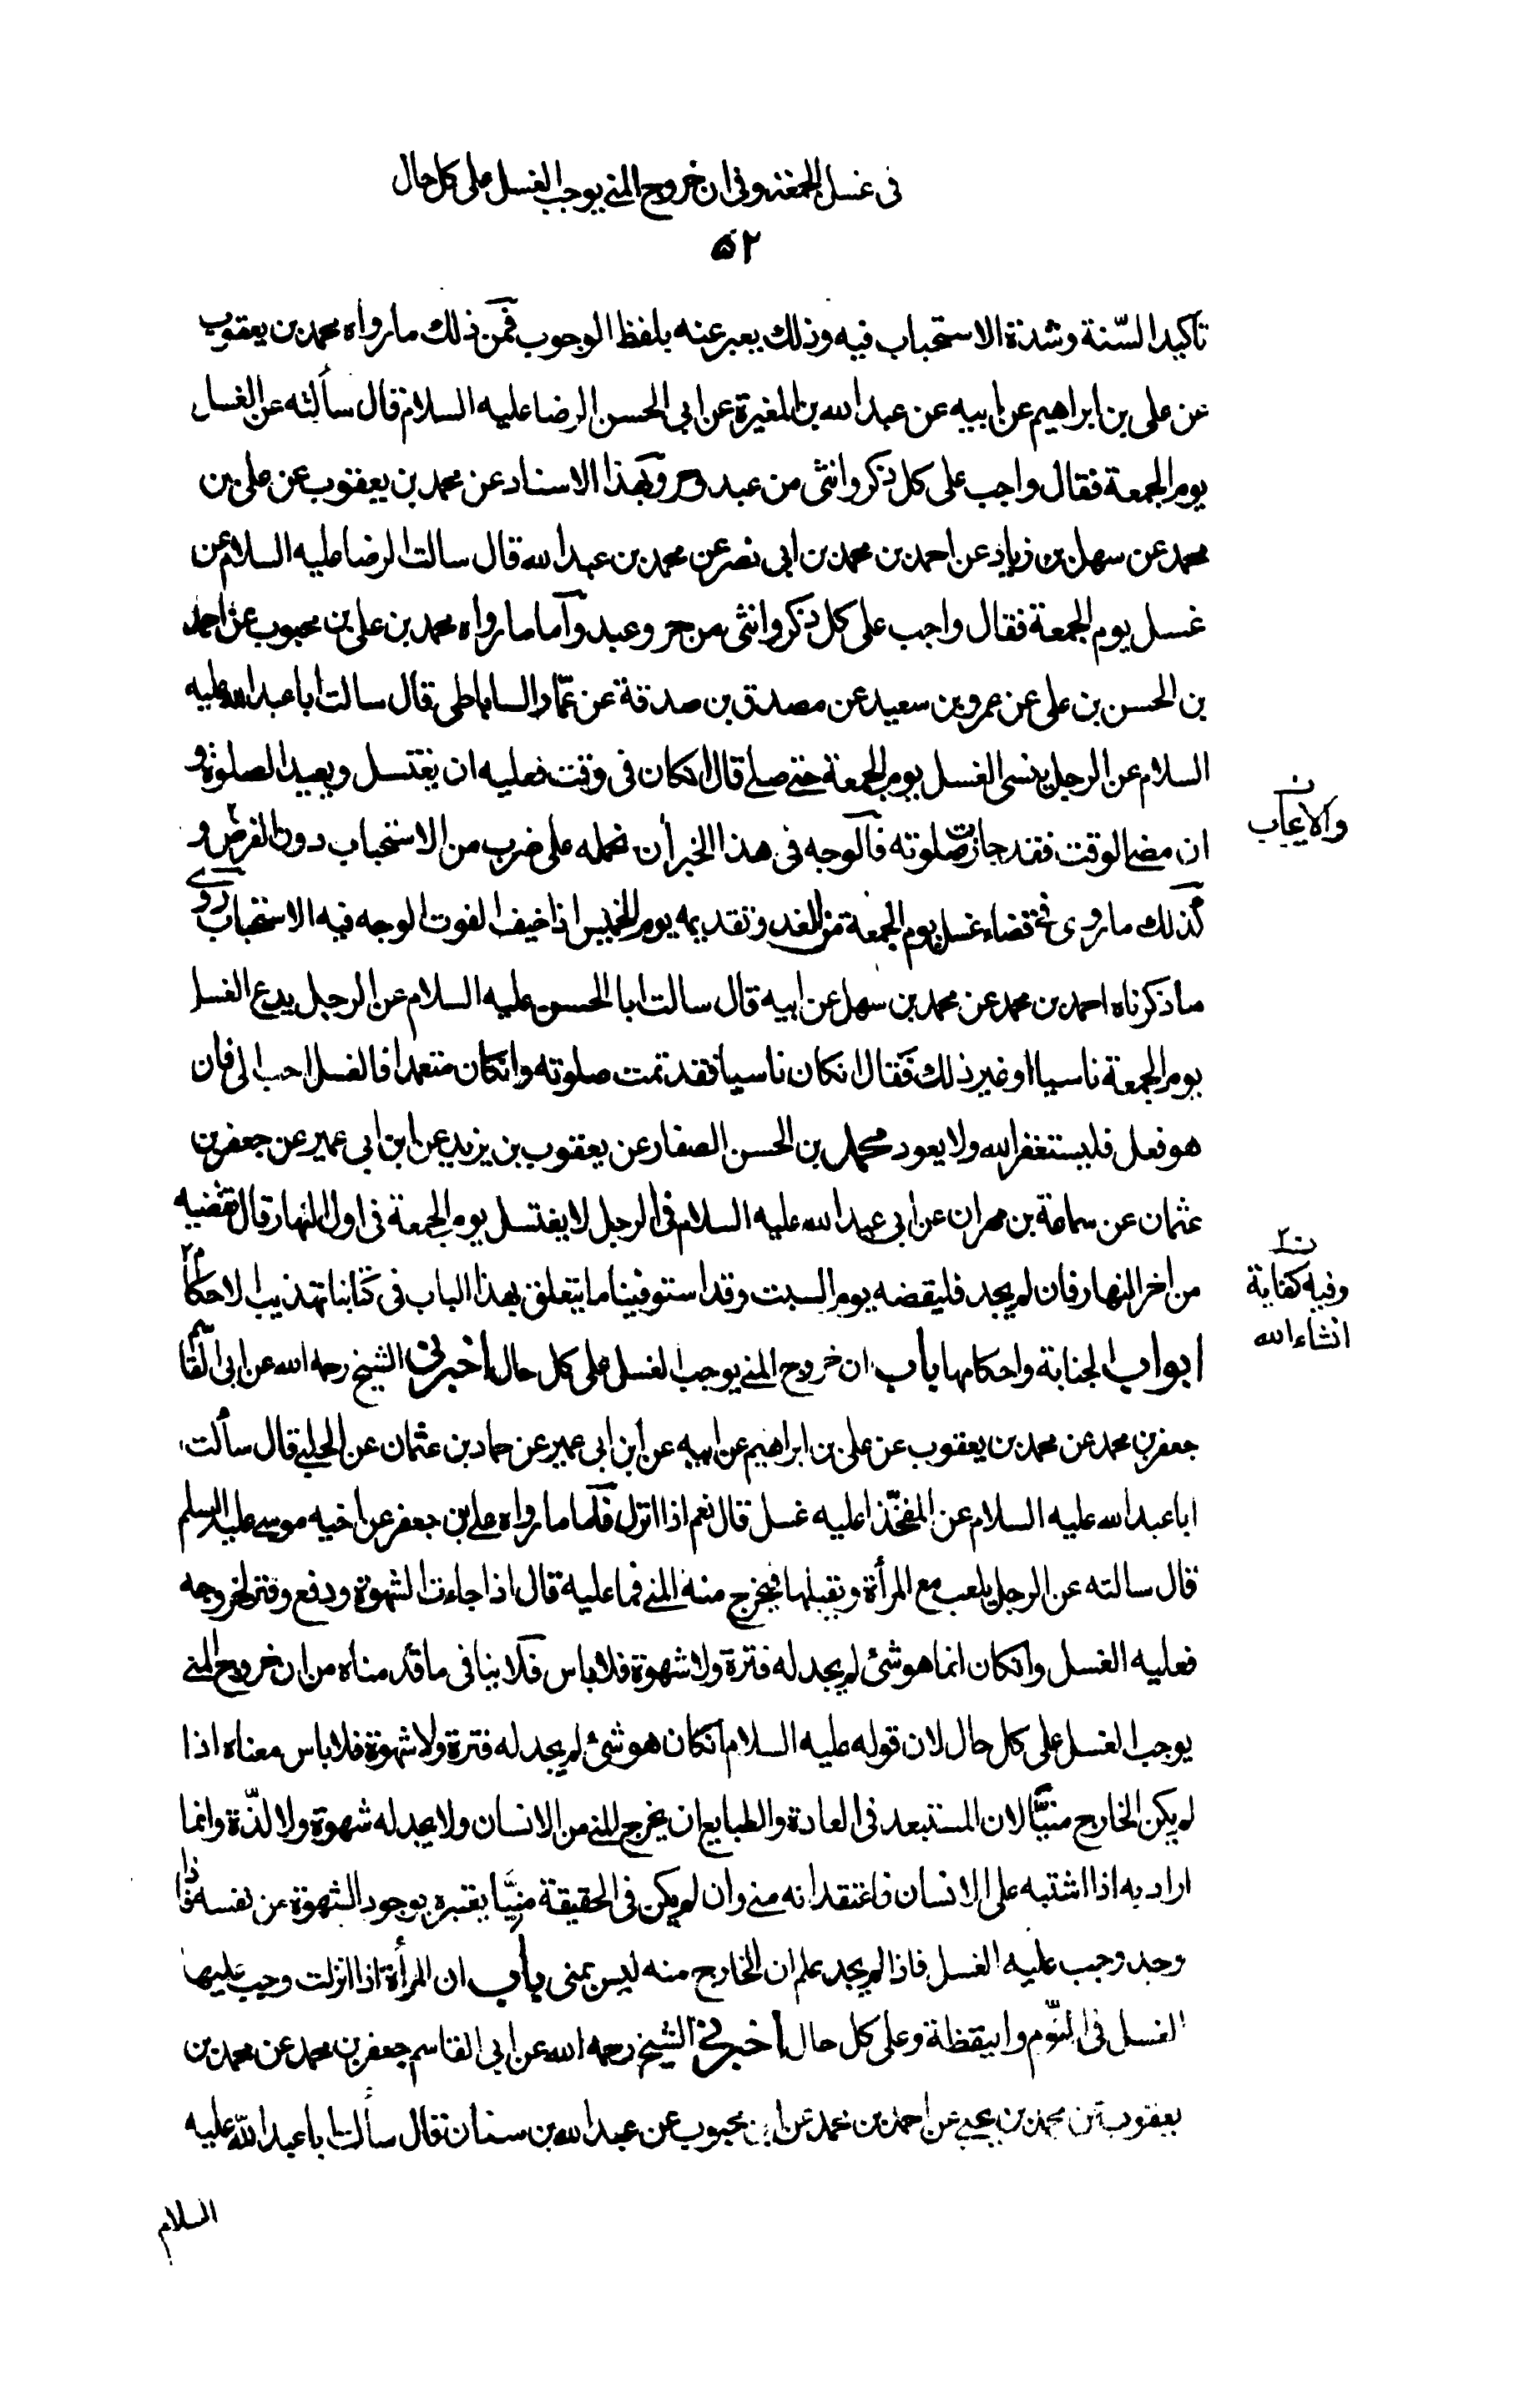 فى غسل الجمعة وفى ان خروج المنى يوجب الغسل على كل حال
٥٢
تاكيد السّنة وشدة الاستحباب فيه وذلك يعبر عنه بلفظ الوجوب فمن ذلك ما رواه محمد بن يعقوب
عن على بن ابراهيم عن ابيه عن عبد الله بن المغيرة عن ابى الحسن الرضا عليه السلام قال سألته عن الغسل
يوم الجمعة فقال واجب على كل ذكر وانثى من عبد وحر وبهذا الاسناد عن محمد بن يعقوب عن على بن
محمد عن سهل بن زياد عن احمد بن محمد بن ابى نصر عن محمد بن عبد الله قال سالت الرضا عليه السلام عن
غسل يوم الجمعة فقال واجب على كل ذكر وانثى من حر وعبد وأما ما رواه محمد بن على بن محبوب عن احمد
بن الحسن بن على عن عمرو بن سعيد عن مصدق بن صدقة عن عمّار الساباطى قال سالت ابا عبد الله عليه
السلام عن الرجل ينسى الغسل يوم الجمعة حتى صلى قال انكان فى وقت فعليه ان يغتسل ويعيد الصلوة و
ان مضى الوقت فقد جازت صلوته فالوجه فى هذا الخبر أن نحمله على ضرب من الاستحباب دون الفرض و
والايجاب
كذلك ما روى فى قضاء غسل يوم الجمعة من الغد وتقديمه يوم الخميس اذا خيف الفوت الوجه فيه الاستحباب روى
ما ذكرناه احمد بن محمد عن محمد بن سهل عن ابيه قال سالت ابا الحسن عليه السلام عن الرجل يدع الغسل
يوم الجمعة ناسيا او غير ذلك فقال انكان ناسيا فقد تمت صلوته وانكان متعمدا فالغسل احب الى فان
هو فعل فليستغفر الله ولا يعود محمد بن الحسن الصفار عن يعقوب بن يزيد عن ابن ابى عمير عن جعفر بن
عثمان عن سماعة بن مهران عن ابى عبد الله عليه السلام فى الرجل لا يغتسل يوم الجمعة فى اول النهار قال يقضيه
من اخر النهار فان لم يجد فليقضه يوم السبت وقد استوفينا ما يتعلق بهذا الباب فى كتابنا تهذيب الاحكام
وفيه كفاية
انشاء الله
ابواب الجنابة واحكامها باب ان خروج المنى يوجب الغسل على كل حال اخبرنى الشيخ رحمه الله عن ابى القاسم
جعفر بن محمد عن محمد بن يعقوب عن على بن ابراهيم عن ابيه عن ابن ابى عمير عن حماد بن عثمان عن الحلبى قال سألت
ابا عبد الله عليه السلام عن المفخّذ اعليه غسل قال نعم اذا انزل فأما ما رواه على بن جعفر عن اخيه موسى عليه السلم
قال سالته عن الرجل يلعب مع المرأة ويقبلها فيخرج منه المنى فما عليه قال اذا جاءت الشهوة ودفع وفتر لخروجه
فعليه الغسل وانكان انما هو شئ لم يجد له فترة ولا شهوة فلا باس فلا ينافى ما قدمناه من ان خروج المنى
يوجب الغسل على كل حال لان قوله عليه السلام انكان هو شئ لم يجد له فترة ولا شهوة فلا باس معناه اذا
لم يكن الخارج منيّا لان المستبعد فى العادة والطبايع ان يخرج المنى من الانسان ولا يجد له شهوة ولا لذّة وانما
اراد به اذا اشتبه على الانسان فاعتقد انه منى وان لم يكن فى الحقيقة منيّا يعتبره بوجود الشهوة عن نفسه فاذا
وجد وجب عليه الغسل فاذا لم يجد علم ان الخارج منه ليس بمنى باب ان المرأة اذا انزلت وجب عليها
الغسل فى النّوم واليقظة وعلى كل حال اخبرنى الشيخ رحمه الله عن ابى القاسم جعفر بن محمد عن محمد بن
يعقوب عن محمد بن يحيى عن احمد بن محمد عن ابن محبوب عن عبد الله بن سنان قال سألت ابا عبد الله عليه
السلام